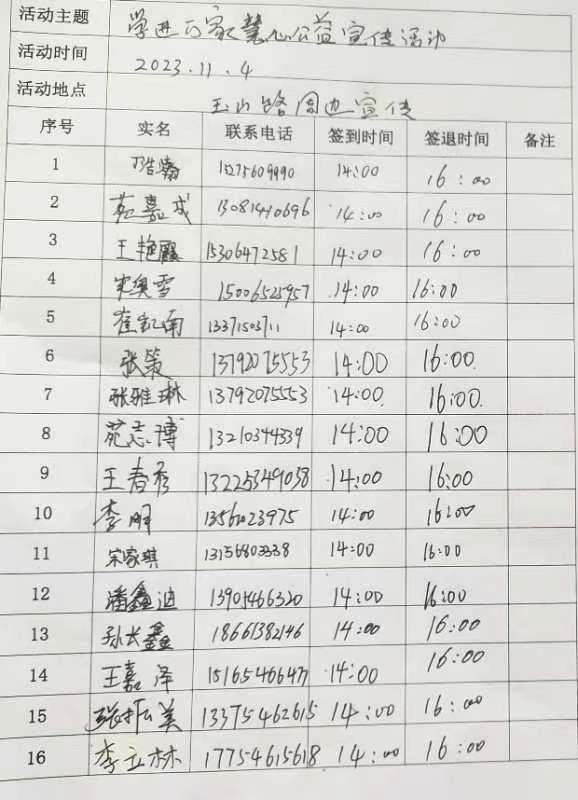 活动主题 学进万家慧心公益宣传活动
活动时间 2023.11.4
活动地点 玉山路周边宣传
序号 实名 联系电话 签到时间 签退时间 备注
1 丁浩瀚 13275609990 14:00 16:00
2 苑嘉成 13081440696 14:00 16:00
3 王艳霞 15306472581 14:00 16:00
4 宋奥雪 15006525957 14:00 16:00
5 崔凯南 13371503711 14:00 16:00
6 张策 13792075553 14:00 16:00
7 张雅琳 13792075553 14:00 16:00
8 苑志博 13210344339 14:00 16:00
9 王春秀 13225349038 14:00 16:00
10 李明 13561023975 14:00 16:00
11 宋家琪 14:00 16:00
12 潘鑫迪 13905466320 14:00 16:00
13 孙长鑫 18661382146 14:00 16:00
14 王嘉泽 14:00 16:00
15 张振美 13375462615 14:00 16:00
16 李立林 17754615618 14:00 16:00